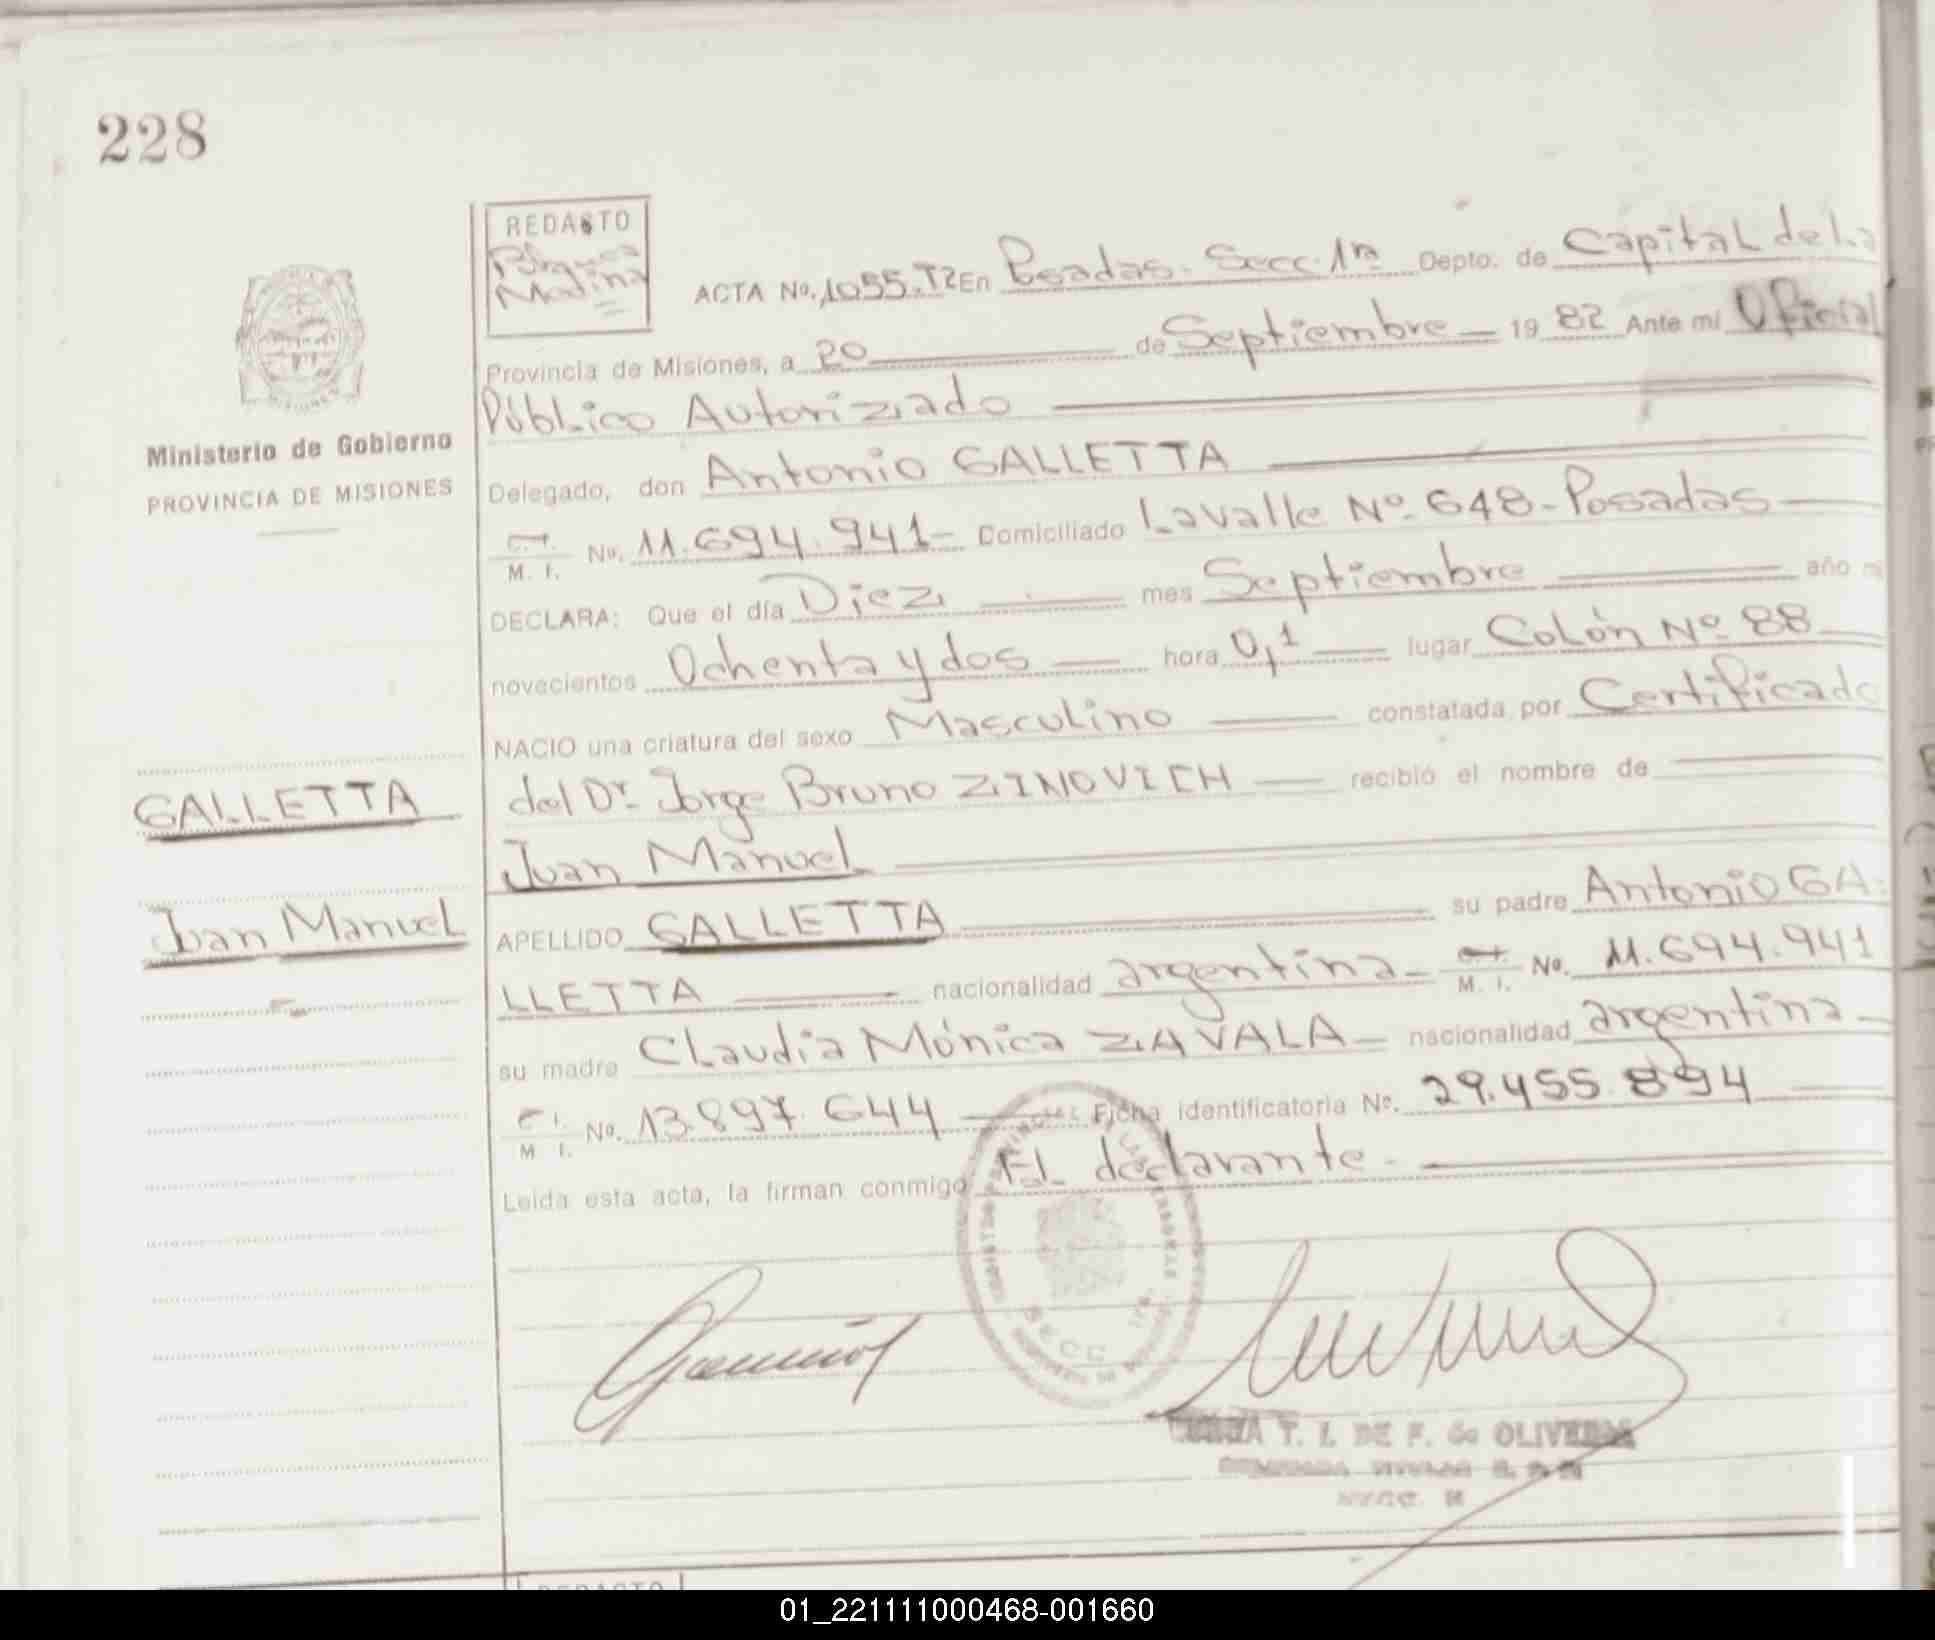 228
REDACTO
Molina
ACTA No. 1055.T2 En Posadas. Secc. 1ra Depto. de Capital de la
Provincia de Misiones, a 20 de Septiembre 19 82 Ante mí Oficial
Público Autorizado
Ministerio de Gobierno
PROVINCIA DE MISIONES
Delegado, don Antonio GALLETTA
C. I. M. I. No. 11.694.941 Domiciliado Lavalle Nº 648 - Posadas
DECLARA: Que el día Diez mes Septiembre año mil
novecientos Ochenta y dos hora 0,1 lugar Colón Nº 88
NACIO una criatura del sexo Masculino constatada por Certificado
GALLETTA
del Dr. Jorge Bruno ZINOVICH recibió el nombre de
Juan Manuel
Juan Manuel
APELLIDO GALLETTA su padre Antonio GA-
LLETTA nacionalidad argentina C. I. M. I. No. 11.694.941
su madre Claudia Mónica ZAVALA nacionalidad argentina
C. I. M. I. No. 13.897.644 Ficha identificatoria No. 29.455.894
Leída esta acta, la firman conmigo El declarante.
SECC 1ra.
T. I. DE F. de OLIVEIRA
01_221111000468-001660